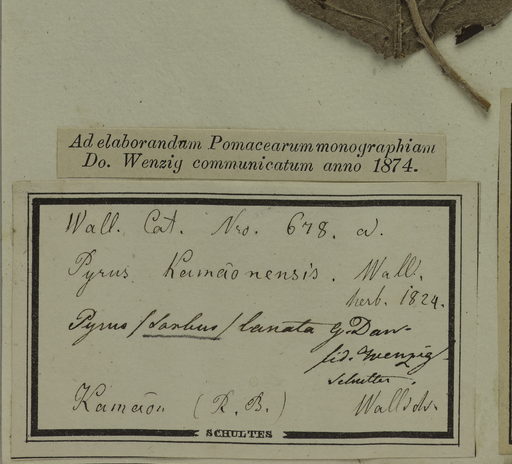 Ad elaborandum Pomacearum monographiam
Do. Wenzig communicatum anno 1874.
Wall. Cat. Nro. 678. a.
Pyrus Kamāonensis. Wall.
herb. 1824.
Pyrus /Sorbus/ lanata G. Don
fid. Wenzig
Kamāon (R. B.)
SCHULTES